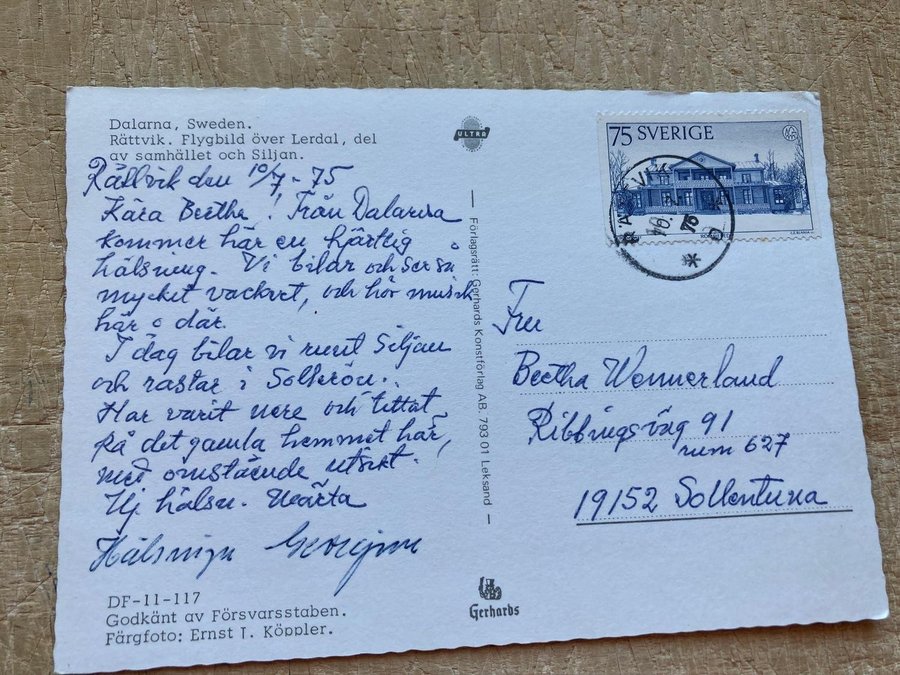 Dalarna, Sweden.
Rättvik. Flygbild över Lerdal, del
av samhället och Siljan.
Rättvik den 10/7-75
Kära Bertha! Från Dalarna
kommer här en hjärtlig
hälsning. Vi bilar och ser så
mycket vackert, och hör musik
här o där.
I dag bilar vi runt Siljan
och rastar i Sollerön.
Har varit nere och tittat
på det gamla hemmet här,
med omstående utsikt.
Hj hälsn. Märta
Hälsningar
DF-11-117
Godkänt av Försvarsstaben.
Färgfoto: Ernst I. Köppler.
ULTRA
Förlagsrätt: Gerhards Konstförlag AB. 793 01 Leksand
Gerhards
75 SVERIGE
RÄTTVIK
Fru
Bertha Wennerland
Ribbingsväg 91
rum 627
19152 Sollentuna